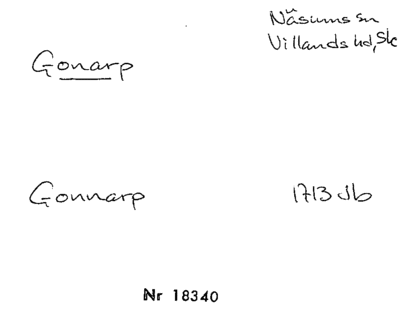 Näsums sn
Villands hd, Sk
Gonarp
Gonnarp 1713 Jb
Nr 18340